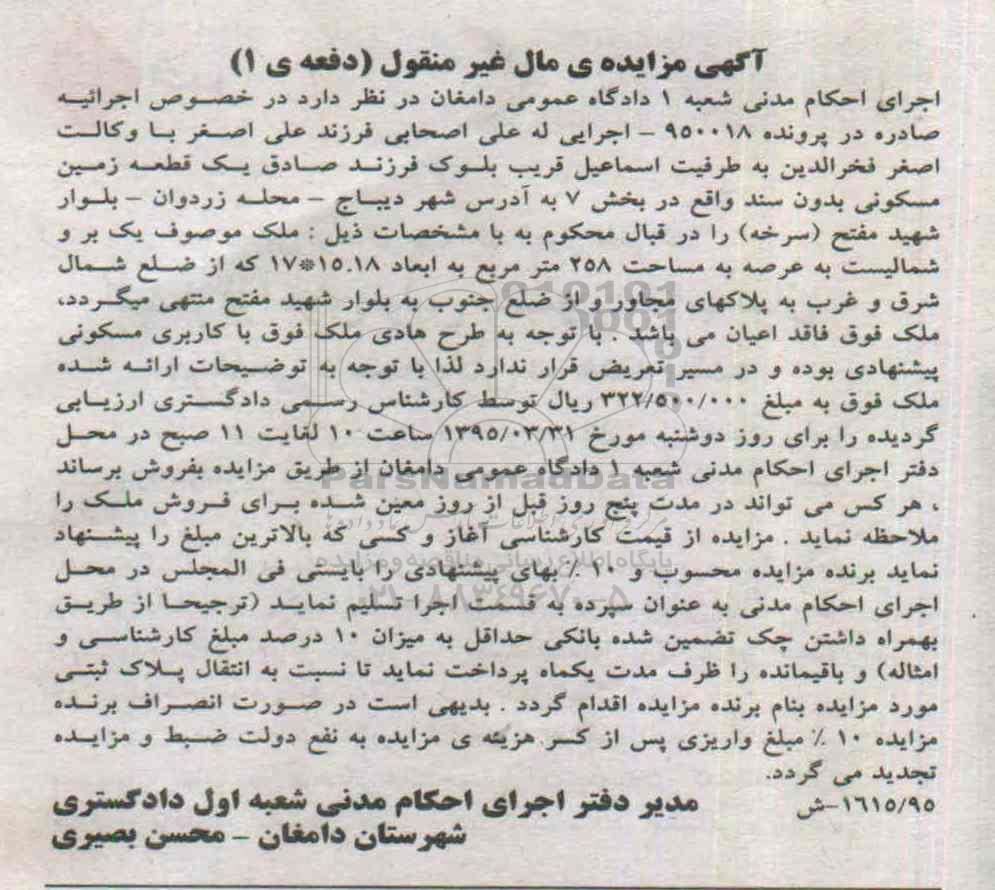 آگهی مزایده ی مال غیر منقول (دفعه ی ۱)
اجرای احکام مدنی شعبه ۱ دادگاه عمومی دامغان در نظر دارد در خصوص اجرائیه
صادره در پرونده ۹۵۰۰۱۸ - اجرایی له علی اصحابی فرزند علی اصغر با وکالت
اصغر فخرالدین به طرفیت اسماعیل قریب بلوک فرزند صادق یک قطعه زمین
مسکونی بدون سند واقع در بخش ۷ به آدرس شهر دیباج - محله زردوان - بلوار
شهید مفتح (سرخه) را در قبال محکوم به با مشخصات ذیل : ملک موصوف یک بر و
شمالیست به عرصه به مساحت ۲۵۸ متر مربع به ابعاد ۱۵.۱۸*۱۷ که از ضلع شمال
شرق و غرب به پلاکهای مجاور و از ضلع جنوب به بلوار شهید مفتح منتهی میگردد،
ملک فوق فاقد اعیان می باشد . با توجه به طرح هادی ملک فوق با کاربری مسکونی
پیشنهادی بوده و در مسیر تعریض قرار ندارد لذا با توجه به توضیحات ارائه شده
ملک فوق به مبلغ ۳۲۲/۵۰۰/۰۰۰ ریال توسط کارشناس رسمی دادگستری ارزیابی
گردیده را برای روز دوشنبه مورخ ۱۳۹۵/۰۳/۳۱ ساعت ۱۰ لغایت ۱۱ صبح در محل
دفتر اجرای احکام مدنی شعبه ۱ دادگاه عمومی دامغان از طریق مزایده بفروش برساند
، هر کس می تواند در مدت پنج روز قبل از روز معین شده برای فروش ملک را
ملاحظه نماید . مزایده از قیمت کارشناسی آغاز و کسی که بالاترین مبلغ را پیشنهاد
نماید برنده مزایده محسوب و ۱۰ ٪ بهای پیشنهادی را بایستی فی المجلس در محل
اجرای احکام مدنی به عنوان سپرده به قسمت اجرا تسلیم نماید (ترجیحا از طریق
بهمراه داشتن چک تضمین شده بانکی حداقل به میزان ۱۰ درصد مبلغ کارشناسی و
امثاله) و باقیمانده را ظرف مدت یکماه پرداخت نماید تا نسبت به انتقال پلاک ثبتی
مورد مزایده بنام برنده مزایده اقدام گردد . بدیهی است در صورت انصراف برنده
مزایده ۱۰ ٪ مبلغ واریزی پس از کسر هزینه ی مزایده به نفع دولت ضبط و مزایده
تجدید می گردد.
۱۶۱۵/۹۵-ش
مدیر دفتر اجرای احکام مدنی شعبه اول دادگستری
شهرستان دامغان - محسن بصیری
ParsNamadData
پایگاه اطلاع رسانی مناقصه و مزایده
۰۲۱-۸۸۳۴۹۶۷۰-۵